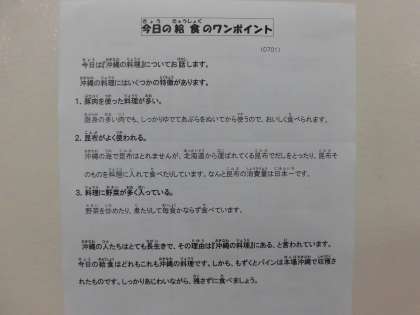 今日の給食のワンポイント
(0701)
今日は『沖縄の料理』についてお話します。
沖縄の料理にはいくつかの特徴があります。
1. 豚肉を使った料理が多い。
脂身の多い肉でも、しっかりゆでてあぶらをぬいてから使うので、おいしく食べられます。
2. 昆布がよく使われる。
沖縄の海で昆布はとれませんが、北海道から運ばれてくる昆布でだしをとったり、昆布そ
のものを料理に入れて食べたりしています。なんと昆布の消費量は日本一です。
3. 料理に野菜が多く入っている。
野菜を炒めたり、煮たりして毎食かならず食べています。
沖縄の人たちはとても長生きで、その理由は『沖縄の料理』にある、と言われています。
今日の給食はどれもこれも沖縄の料理です。しかも、もずくとパインは本場沖縄で収穫さ
れたものです。しっかりあじわいながら、残さずに食べましょう。